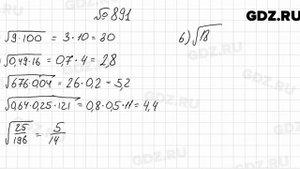 №891
GDZ.RU
√9·100 = 3·10 = 30
б) √18
√0,49·16 = 0,7·4 = 2,8
√676·0,04 = 26·0,2 = 5,2
√0,64·0,25·121 = 0,8·0,5·11 = 4,4
√25/196 = 5/14
GDZ.RU